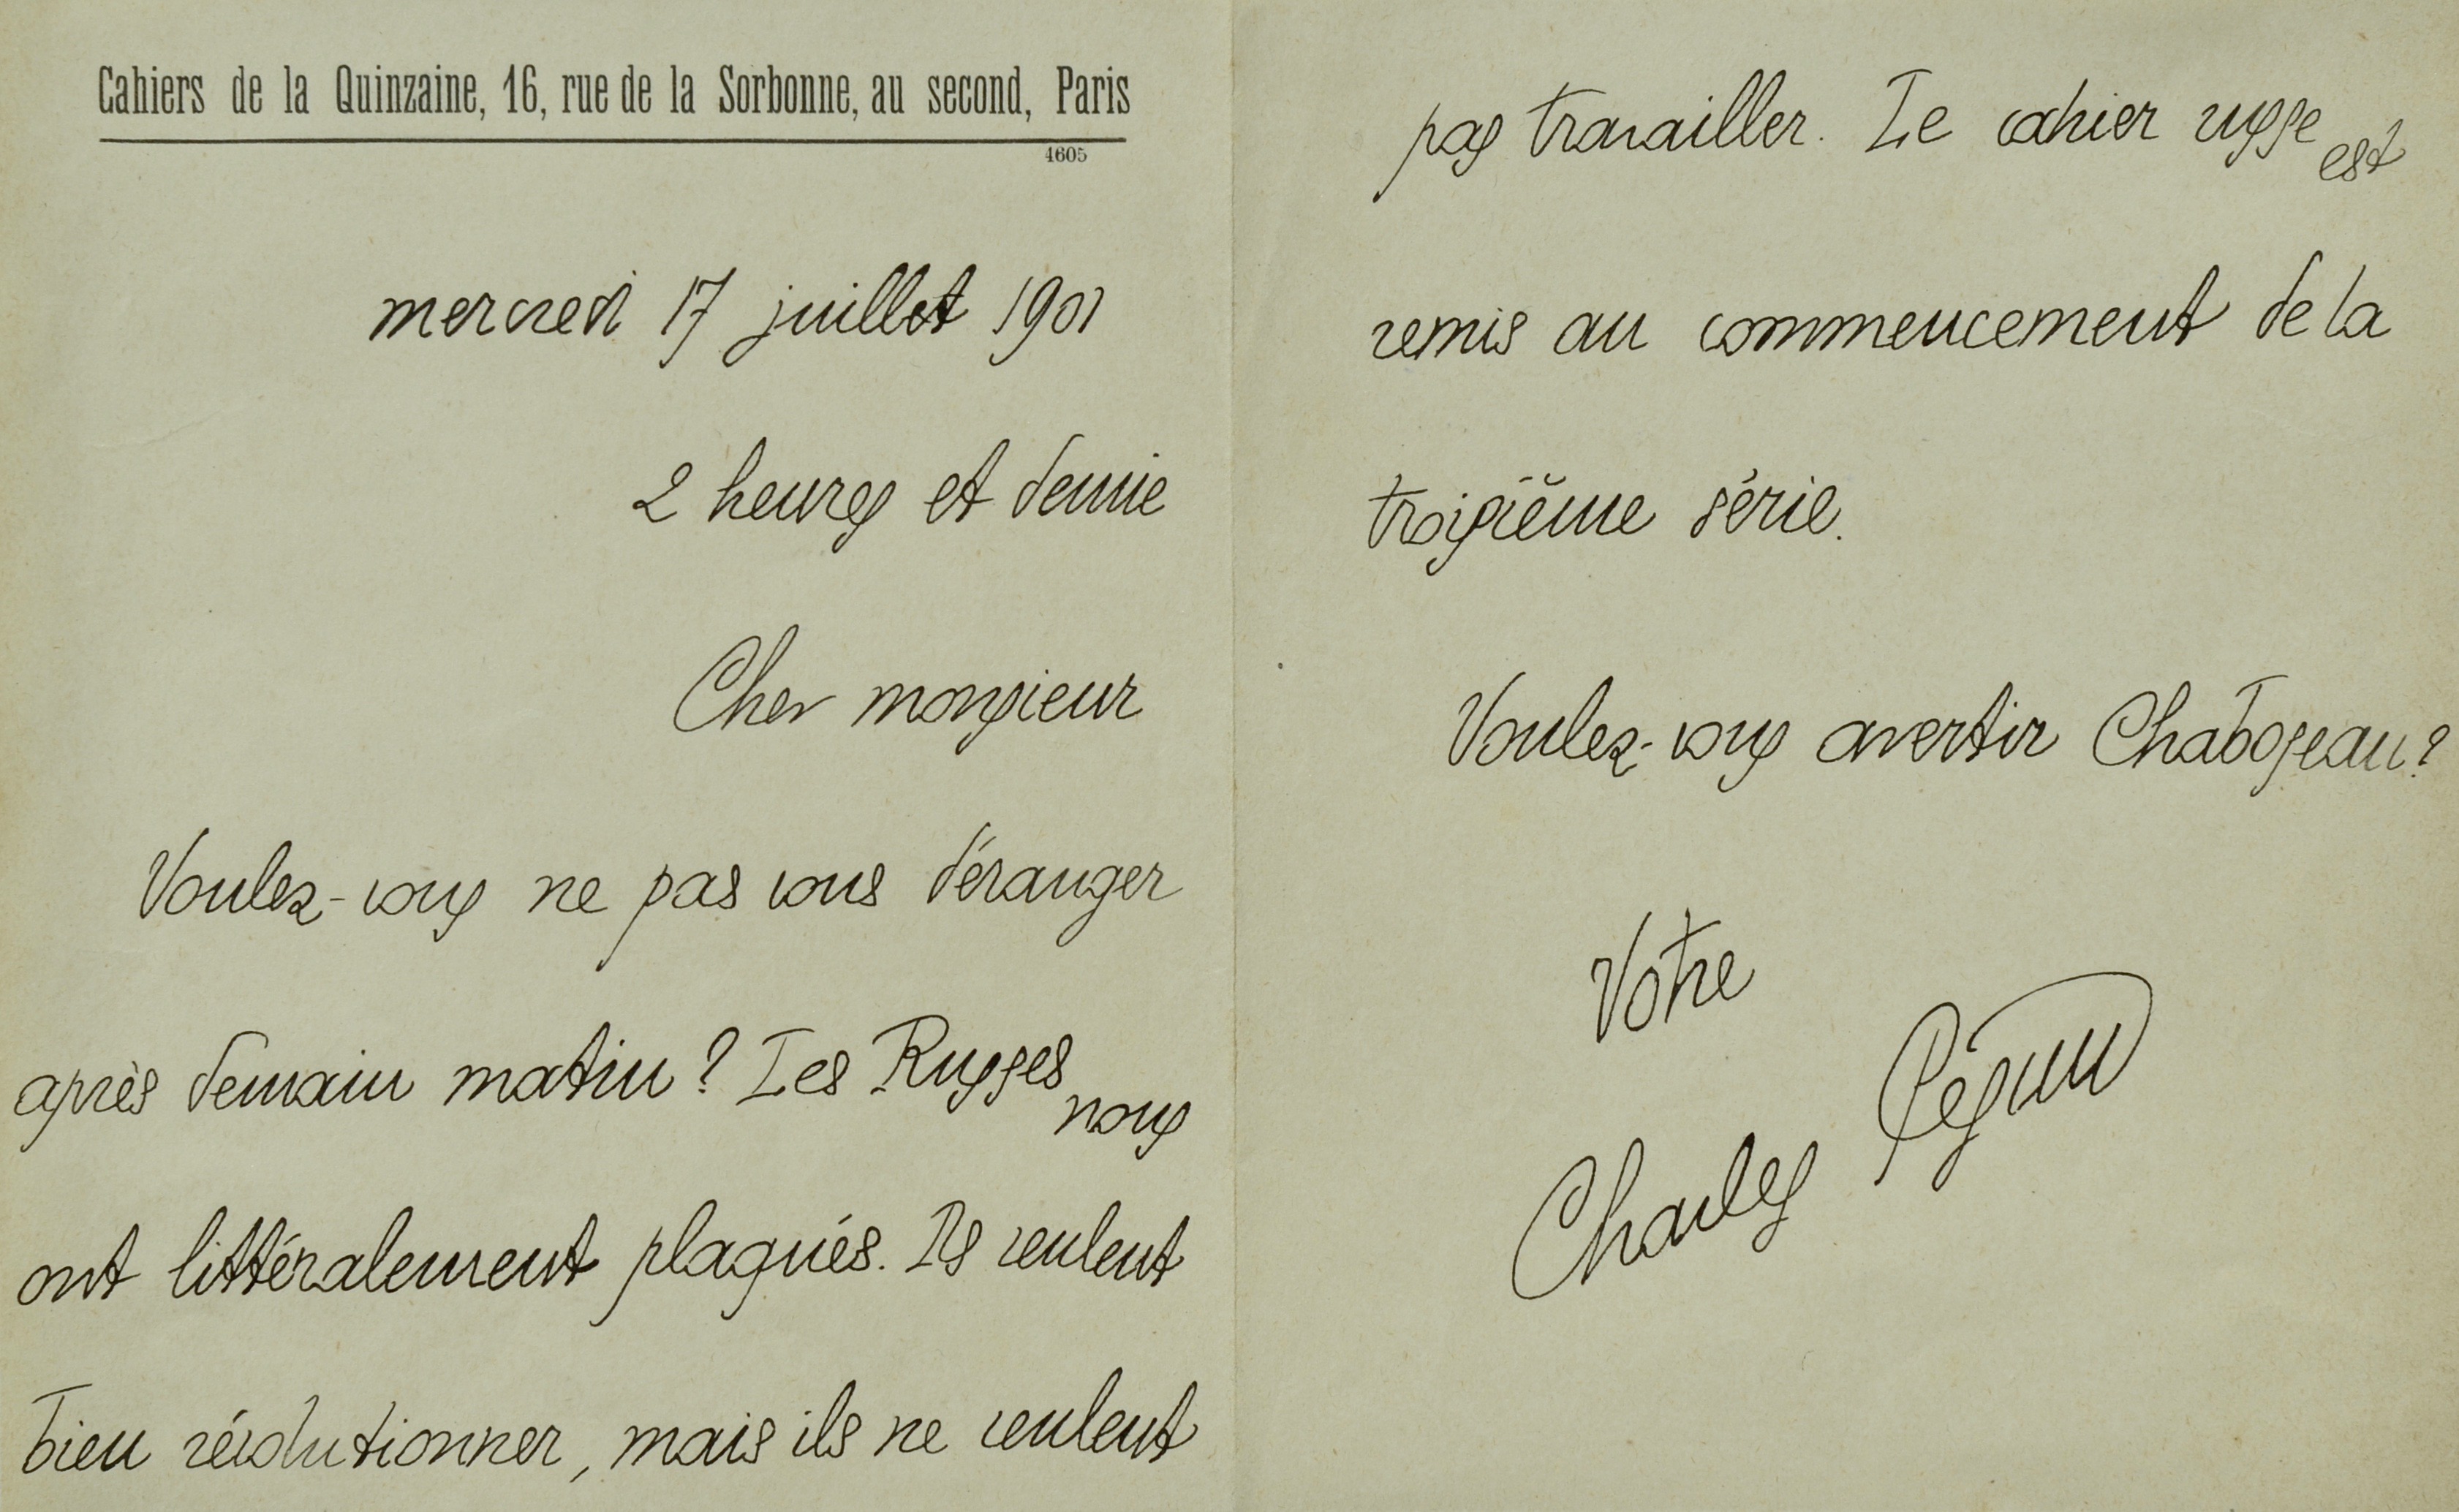 Cahiers de la Quinzaine, 16, rue de la Sorbonne, au second, Paris
4605
mercredi 17 juillet 1901
2 heures et demie
Cher monsieur
Voulez-vous ne pas vous déranger
après demain matin ? Les Russes nous
ont littéralement plaqués. Ils veulent
bien révolutionner, mais ils ne veulent
pas travailler. Le cahier russe est
remis au commencement de la
troisième série.
Voulez-vous avertir Chaboseau ?
Votre
Charles Péguy